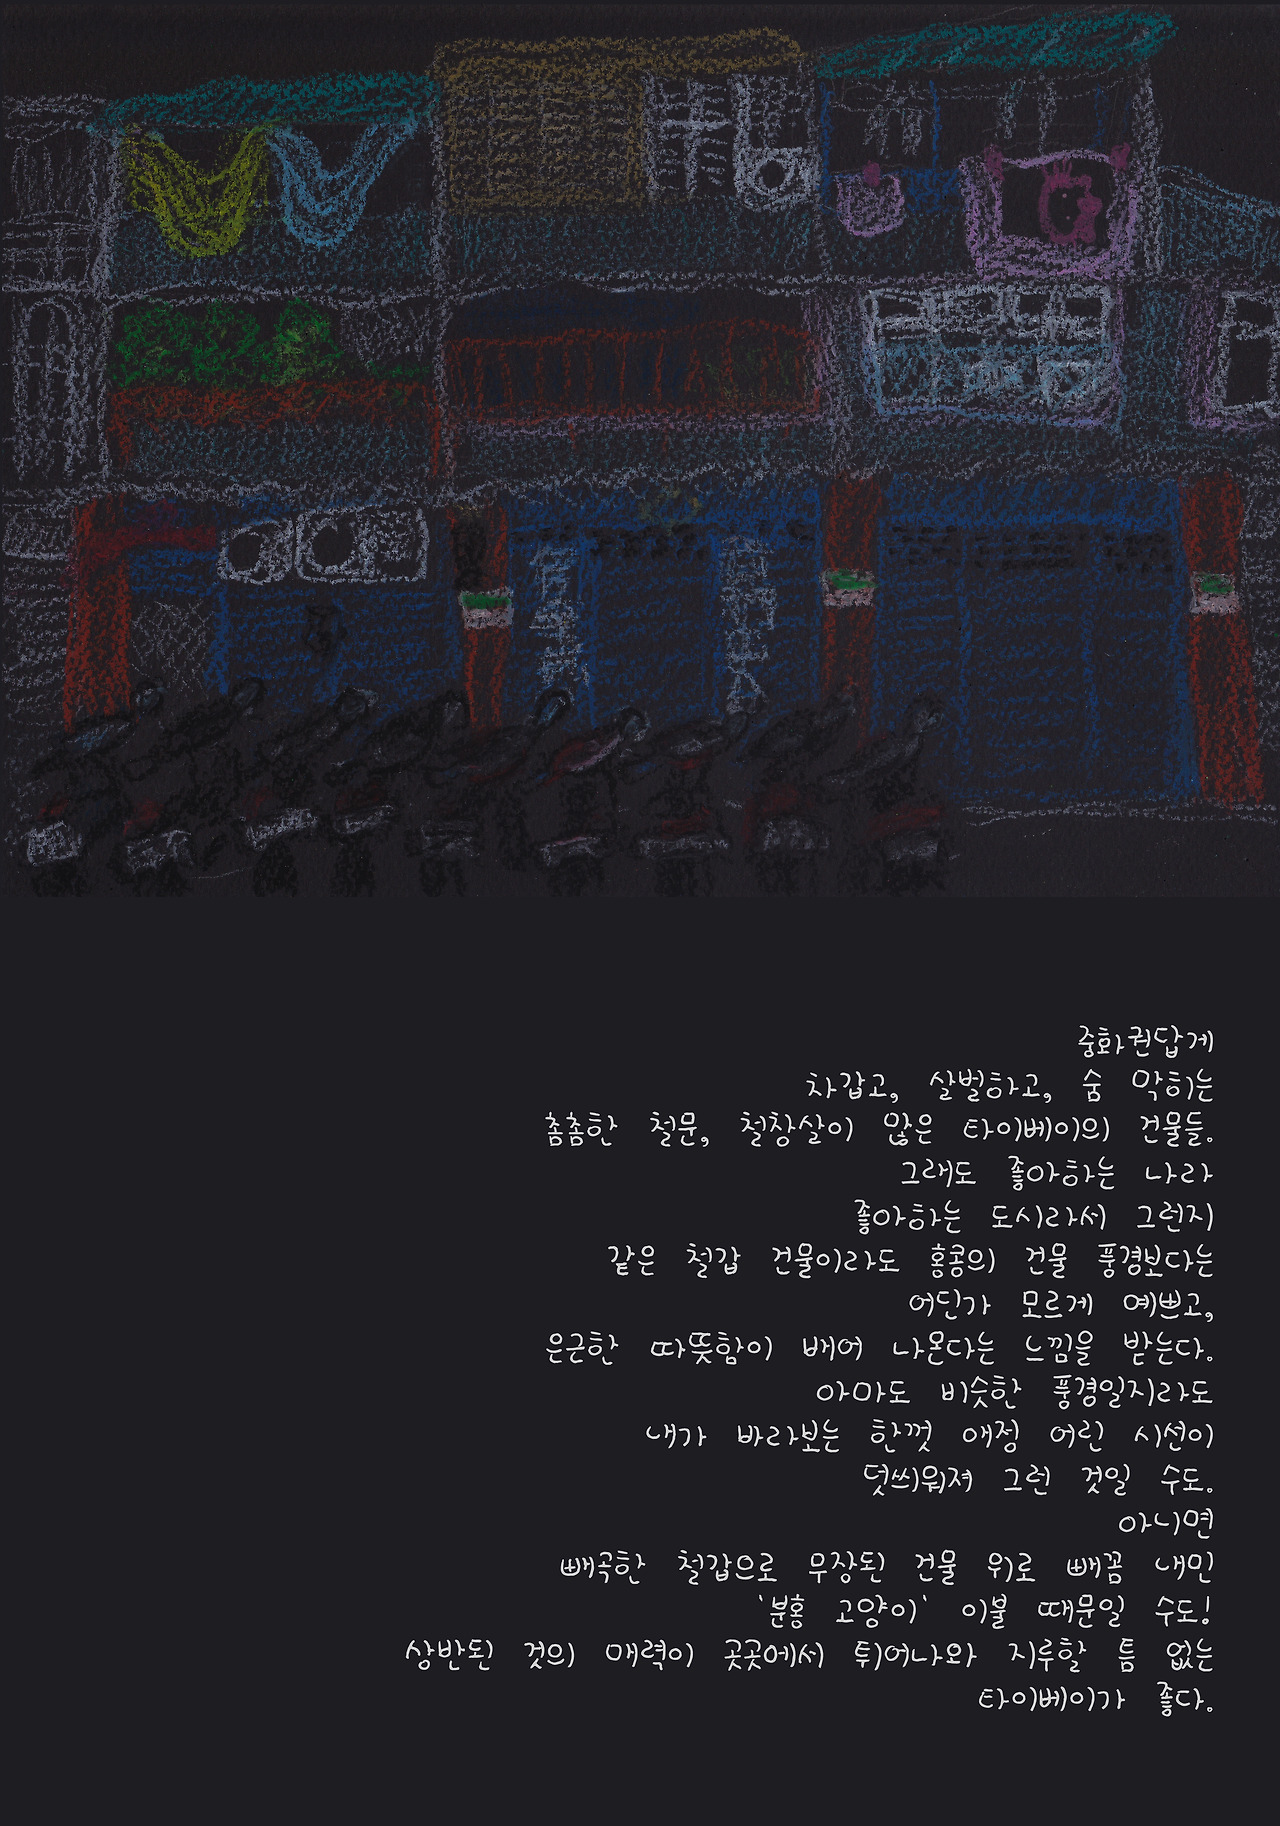 중화권답게
차갑고, 살벌하고, 숨 막히는
촘촘한 철문, 철창살이 많은 타이베이의 건물들.
그래도 좋아하는 나라
좋아하는 도시라서 그런지
같은 철갑 건물이라도 홍콩의 건물 풍경보다는
어딘가 모르게 예쁘고,
은근한 따뜻함이 배어 나온다는 느낌을 받는다.
아마도 비슷한 풍경일지라도
내가 바라보는 한껏 애정 어린 시선이
덧씌워져 그런 것일 수도.
아니면
빼곡한 철갑으로 무장된 건물 위로 빼꼼 내민
'분홍 고양이' 이불 때문일 수도!
상반된 것의 매력이 곳곳에서 튀어나와 지루할 틈 없는
타이베이가 좋다.